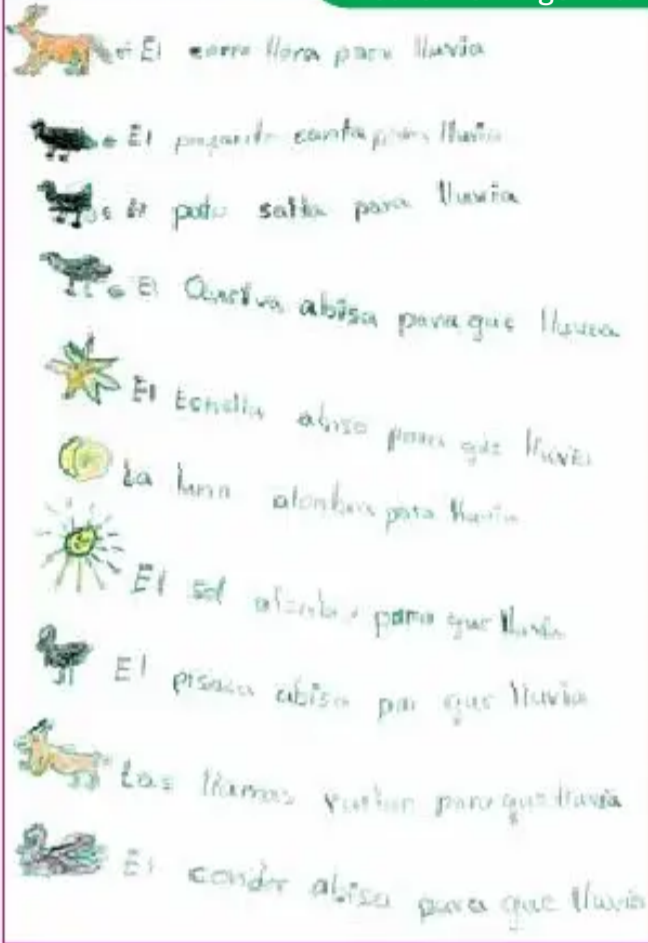 El zorro llora para lluvia
El pajarito canta para lluvia
El pato salta para lluvia
El abisa para que lluvea
El abisa para que lluvia
La luna alombra para lluvia
El sol para que lluvia
El pisaca abisa par que lluvia
Las llamas para que lluvia
El condor abisa para que lluvia